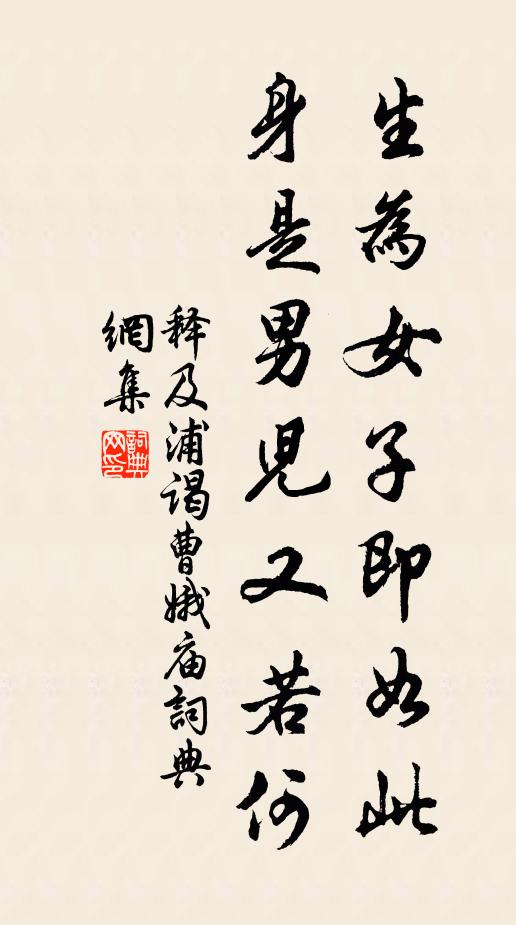 生為女子即如此
身是男兒又若何
释及浦谒曹娥庙詞典
網集
詞典网印